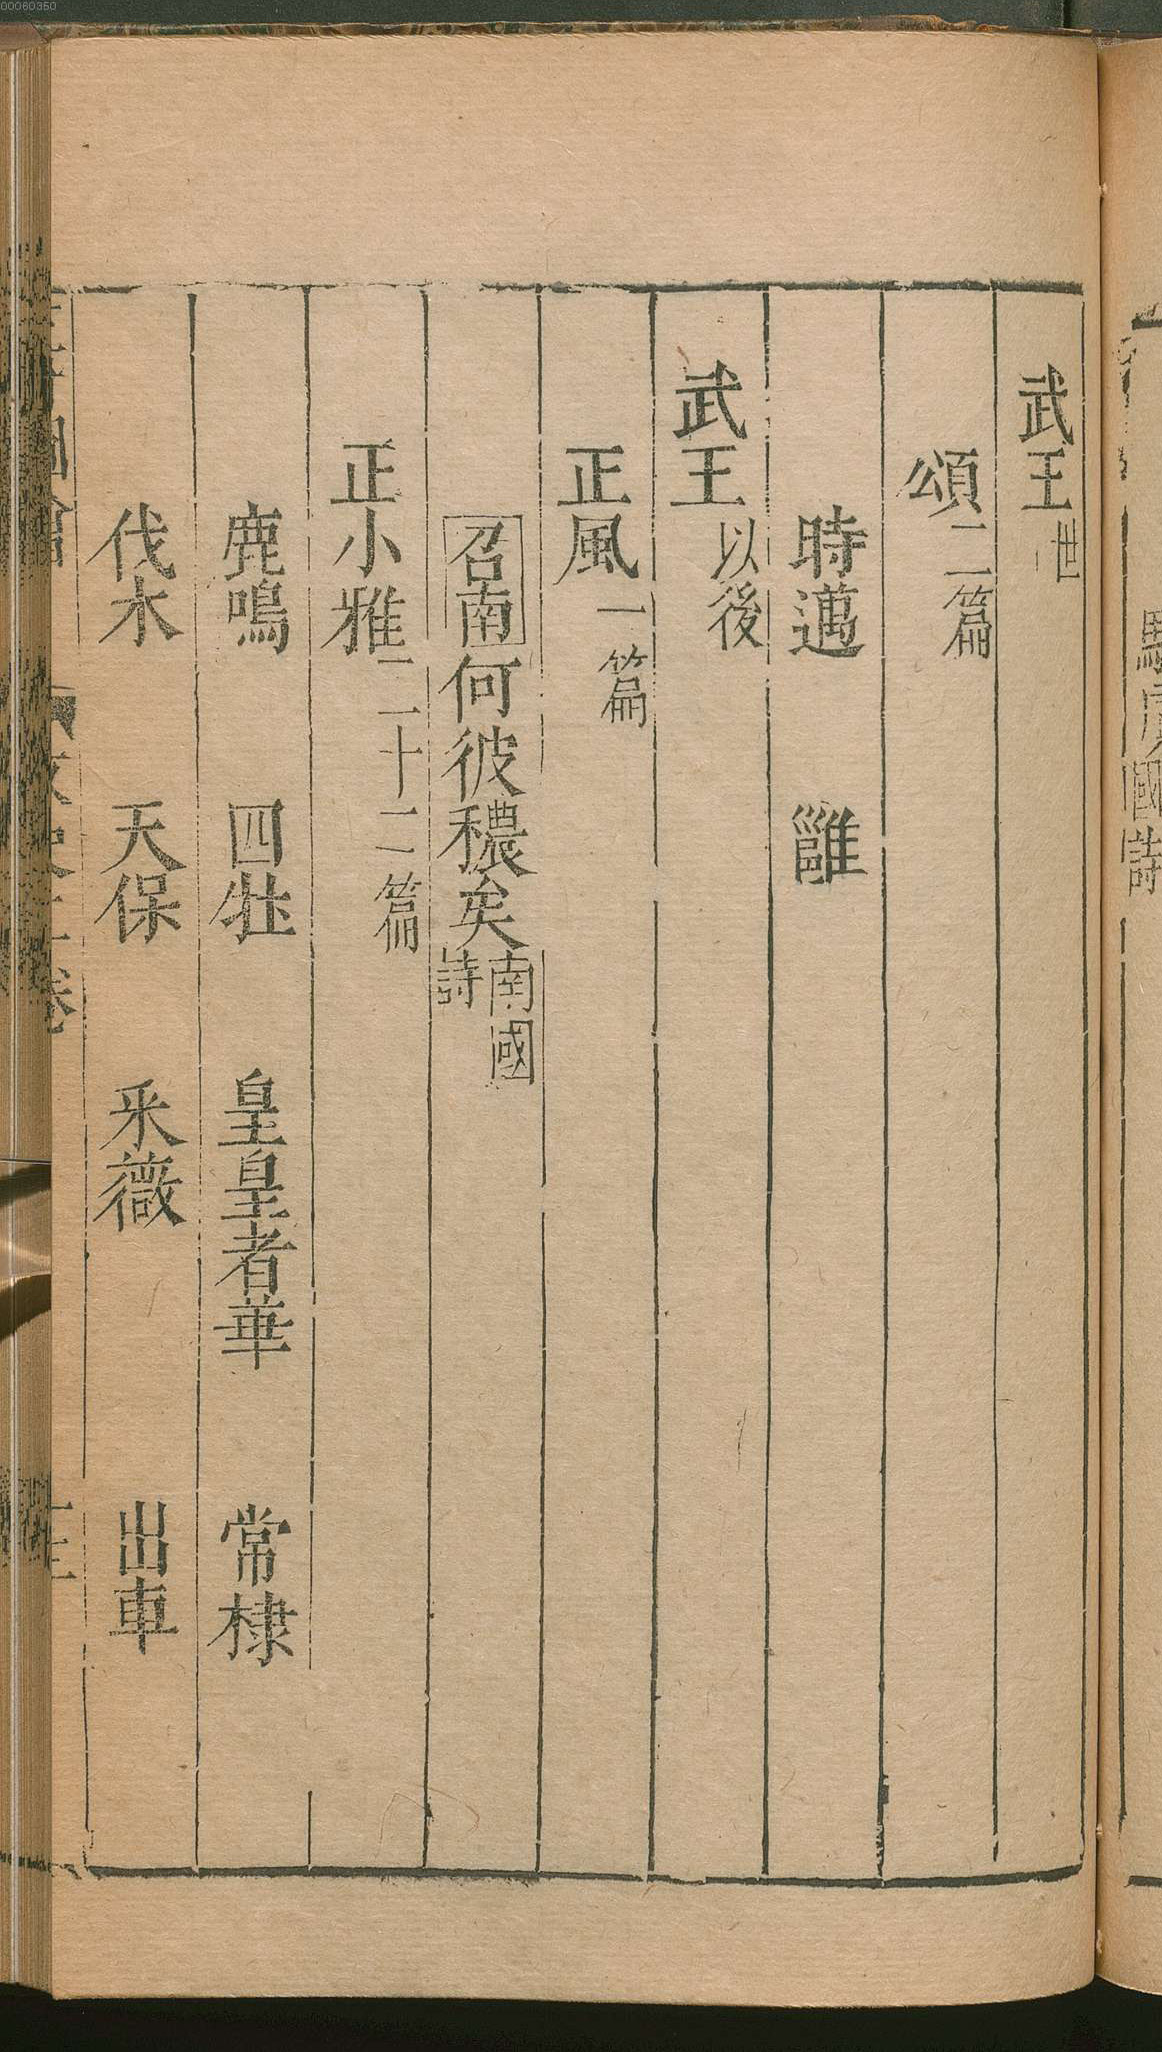 00060350
國詩
武王世
頌二篇
時邁 雝
武王以後
正風一篇
召南何彼穠矣南國詩
正小雅二十二篇
鹿鳴 四牡 皇皇者華 常棣
伐木 天保 采薇 出車